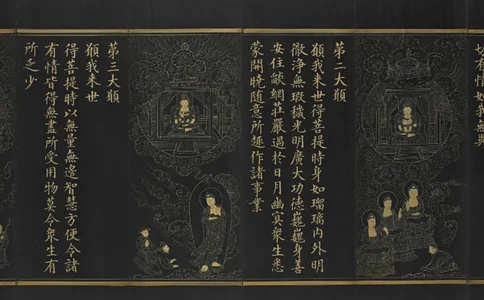 切有情如我無異
第二大願
願我來世得菩提時身如瑠璃內外明
徹淨無瑕穢光明廣大功德巍巍身善
安住燄網莊嚴過於日月幽冥衆生悉
蒙開曉隨意所趣作諸事業
第三大願
願我來世
得菩提時以無量無邊智慧方便令諸
有情皆得無盡所受用物莫令衆生有
所乏少